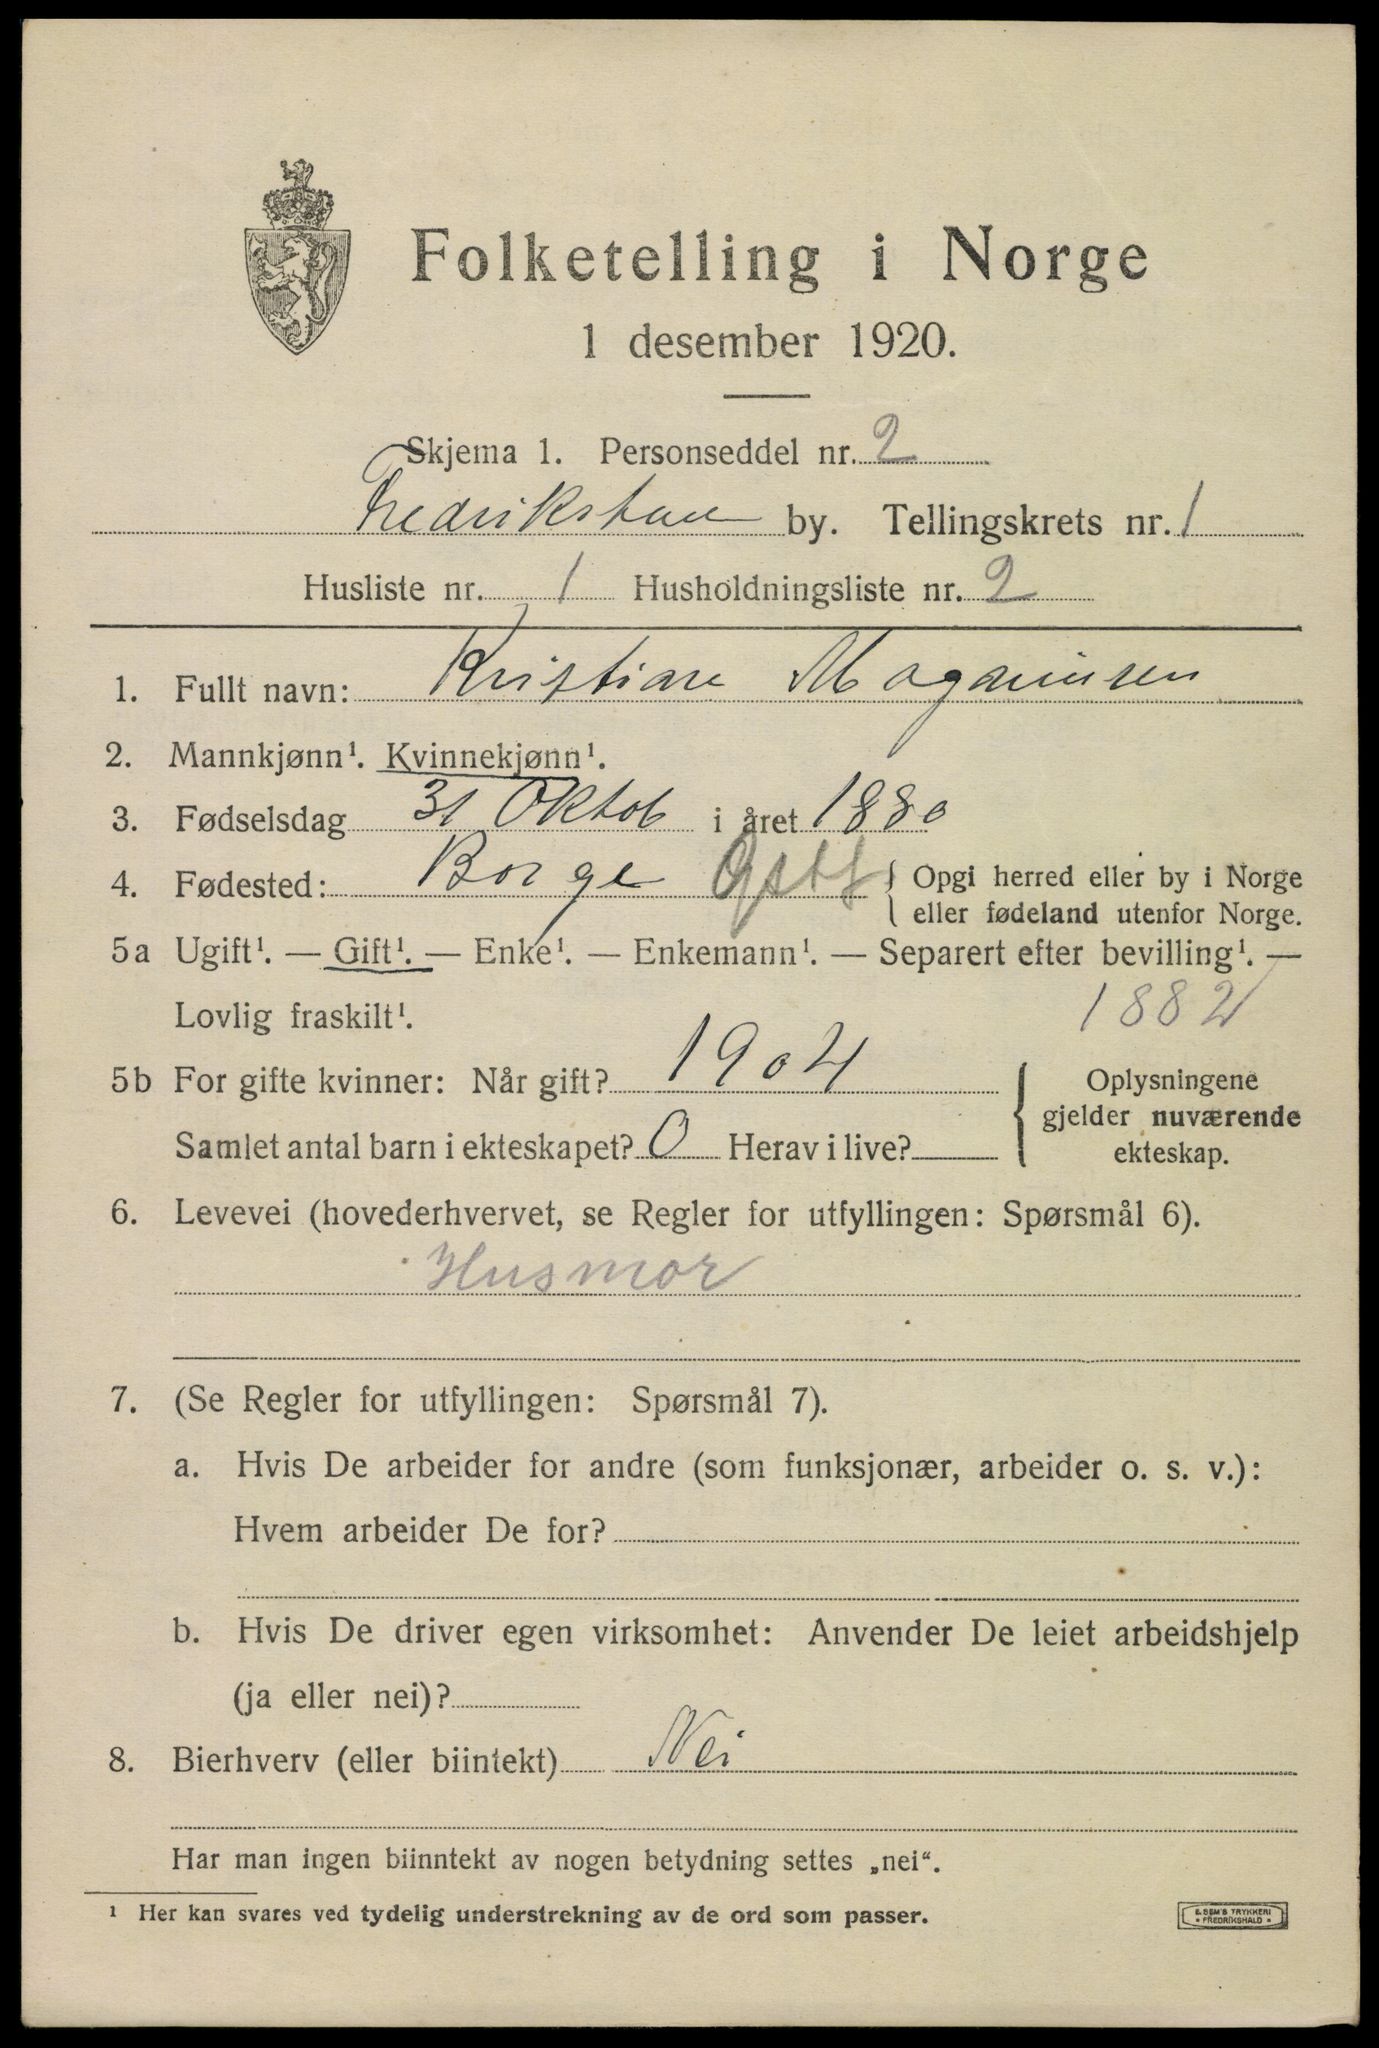 Folketelling i Norge
1 desember 1920.
Skjema 1. Personseddel nr. 2
Fredrikstad by. Tellingskrets nr. 1
Husliste nr. 1 Husholdningsliste nr. 2
1. Fullt navn: Kristiane Magnussen
2. Mannkjønn¹. Kvinnekjønn¹.
3. Fødselsdag 31 Oktob i året 1880
4. Fødested: Borge Østf { Opgi herred eller by i Norge
eller fødeland utenfor Norge.
5a Ugift¹. — Gift¹. — Enke¹. — Enkemann¹. — Separert efter bevilling¹. —
Lovlig fraskilt¹. 1882
5b For gifte kvinner: Når gift? 1904
Samlet antal barn i ekteskapet? 0 Herav i live?
{ Oplysningene
gjelder nuværende
ekteskap.
6. Levevei (hovederhvervet, se Regler for utfyllingen: Spørsmål 6).
Husmor
7. (Se Regler for utfyllingen: Spørsmål 7).
a. Hvis De arbeider for andre (som funksjonær, arbeider o. s. v.):
Hvem arbeider De for?
b. Hvis De driver egen virksomhet: Anvender De leiet arbeidshjelp
(ja eller nei)?
8. Bierhverv (eller biintekt) Nei
Har man ingen biinntekt av nogen betydning settes „nei“.
¹ Her kan svares ved tydelig understrekning av de ord som passer.
E. SEM'S TRYKKERI
* FREDRIKSHALD *